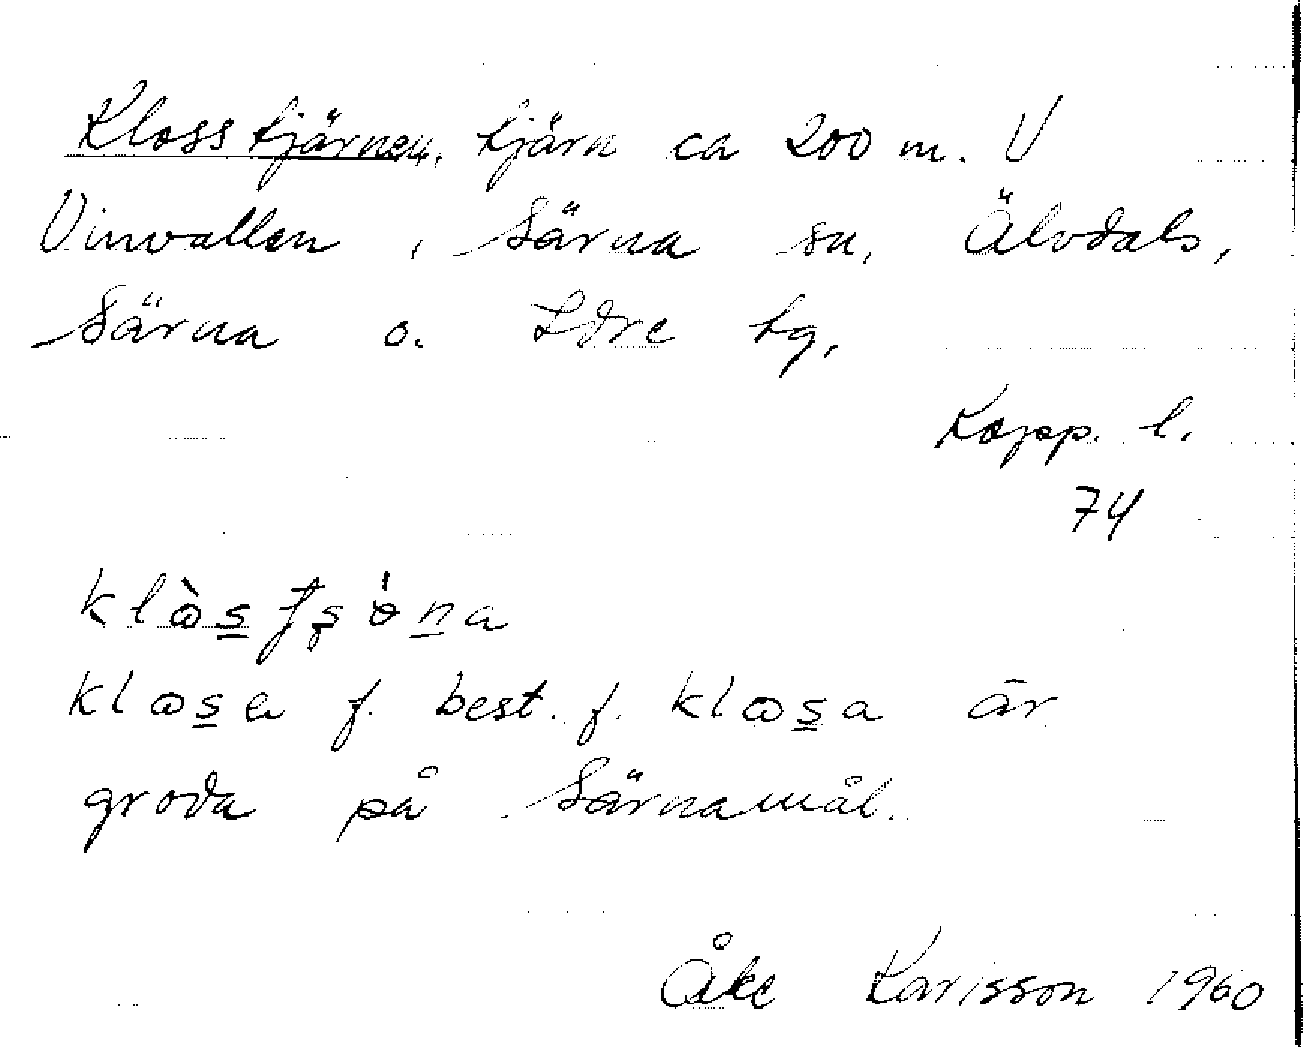 Klosstjärnen, tjärn ca 200 m. V
Vinvallen, Särna sn, Älvdals,
Särna o. Idre tg,
Kopp. l.
74
klo̯sa f. best. f. klo̯sa är
groda på Särnamål.
Åke Karlsson 1960